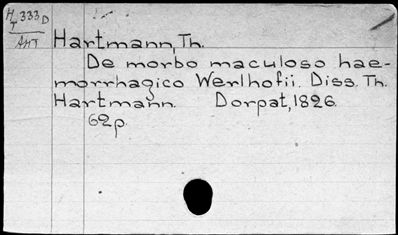 H 333 D
T
AHT
Hartmann, Th.
De morbo maculoso hae-
morrhagico Werlhofii. Diss. Th.
Hartmann. Dorpat, 1826.
62p.